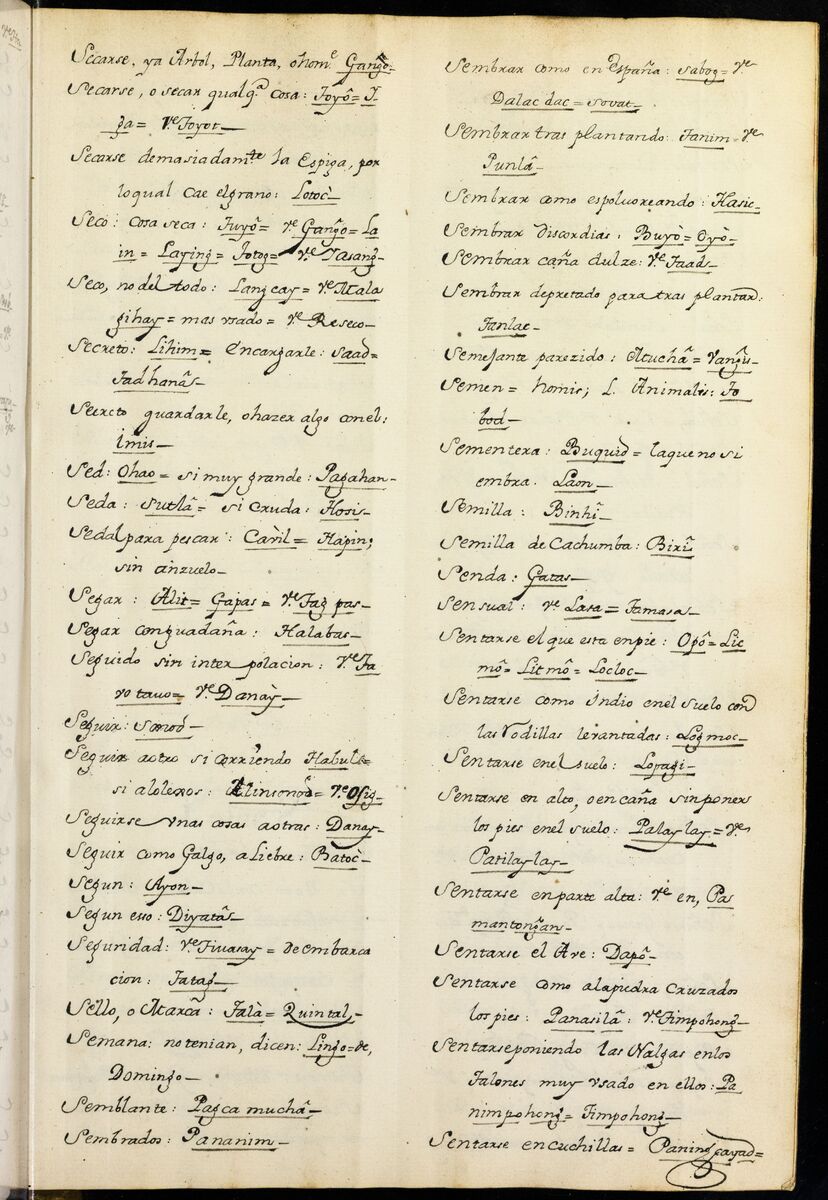 Secarse, ya Arbol, Planta, o hom.e Gangõ:
Secarse, o secar qualq.a cosa: Toyô= T
ga= V.e Toyot_
Secarse demasiadam.te la Espiga, por
lo qual cae el grano: Lotoc_
Seco: cosa seca: Tuyô= v.e Gangõ= La
in= Laying= Totog= v.e Tasang_
Seco, no del todo: Langcay= v.e Mala
gihay= mas vsado= v.e Reseco_
Secreto: Lihim= encargarle: Saad=
Tadhanâs_
Secreto guardarle, o hazer algo con el:
imis_
Sed: Ohao= si muy grande: Pagahan_
Seda: Sutlâ= si cruda: Hosis_
Sedal para pescar: Cavil= Hapin;
sin anzuelo_
Segar: Alit= Gapas= v.e Tag pas_
Segar con guadaña: Halabas_
Seguido sin inter polacion: v.e Ta
vo tavo= v.e Danày_
Seguir: Sonod_
Seguir a otro si corriendo Habul=
si a lo lexos: Alinsonod= v.e Osig_
Seguirse vnas cosas a otras: Danay_
Seguir como Galgo, a Liebre: Batoc_
Segun: Ayon_
Segun eso: Diyatâs_
Seguridad: v.e Tivasay= de embarca
cion: Tatag_
Sello, o Marca: Talà= Quintal_
Semana: no tenian, dicen: Lingo= de,
Domingo_
Semblante: Pagca muchâ_
Sembrados: Pananim_
Sembrar como en España: sabog= v.e
Dalac dac= sovat_
Sembrar tras plantando: Tanim= v.e
Punlâ_
Sembrar como espolvoreando: Hasic_
Sembrar discordias: Buyò= Oyò_
Sembrar caña dulze: v.e Taad_
Sembrar depretado para tras plantar:
Tanlac_
Semejante parezido: Muchâ= Vangis_
Semen= homis; L. Animalis: To
bod_
Sementera: Buquid= la que no si
embra. Laon_
Semilla: Binhî_
Semilla de Cachumba: Birî_
Senda: Gatas_
Sensual: v.e Lasa= Tamasa_
Sentarse el que esta en pie: Opô= Lic
mô= Litmô= Locloc_
Sentarse como Indio en el suelo con
las rodillas levantadas: Logmoc_
Sentarse en el suelo: Lopagi_
Sentarse en alto, o en caña sin poner
los pies en el suelo: Palaylay= v.e
Patilaylay_
Sentarse en parte alta: v.e en, Pa
mantongan_
Sentarse el Ave: Dapô_
Sentarse como a la piedra cruzados
los pies: Panasilâ: v.e Timpohong_
Sentarse poniendo las Nalgas en los
Talones muy vsado en ellos: Pa
nimpohong= Timpohong_
Sentarse en cuchillas=